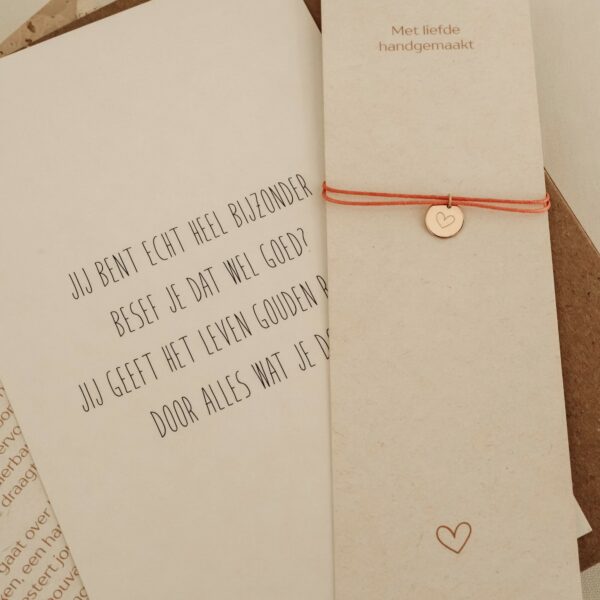 Met liefde
handgemaakt
JIJ BENT ECHT HEEL BIJZONDER
BESEF JE DAT WEL GOED?
JIJ GEEFT HET LEVEN GOUDEN
DOOR ALLES WAT JE
draagt
gaat over
een